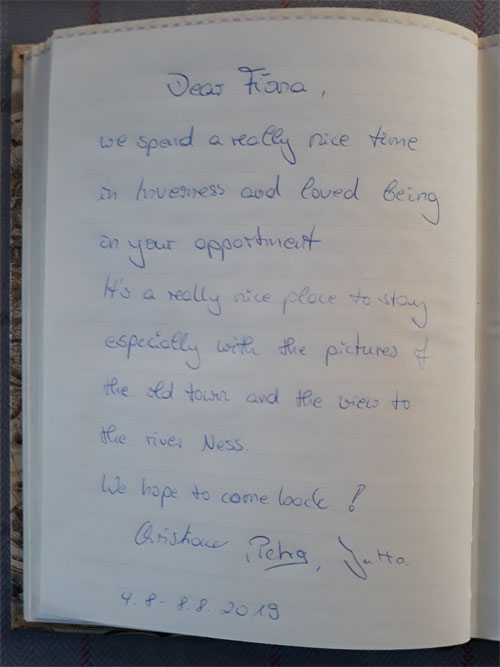 Dear Fiona,
we spend a really nice time
in Inverness and loved being
in your appartment.
It's a really nice place to stay
especially with the pictures of
the old town and the view to
the river Ness.
We hope to come back!
Christiane, Petra, Jutta
4.8-8.8.2019